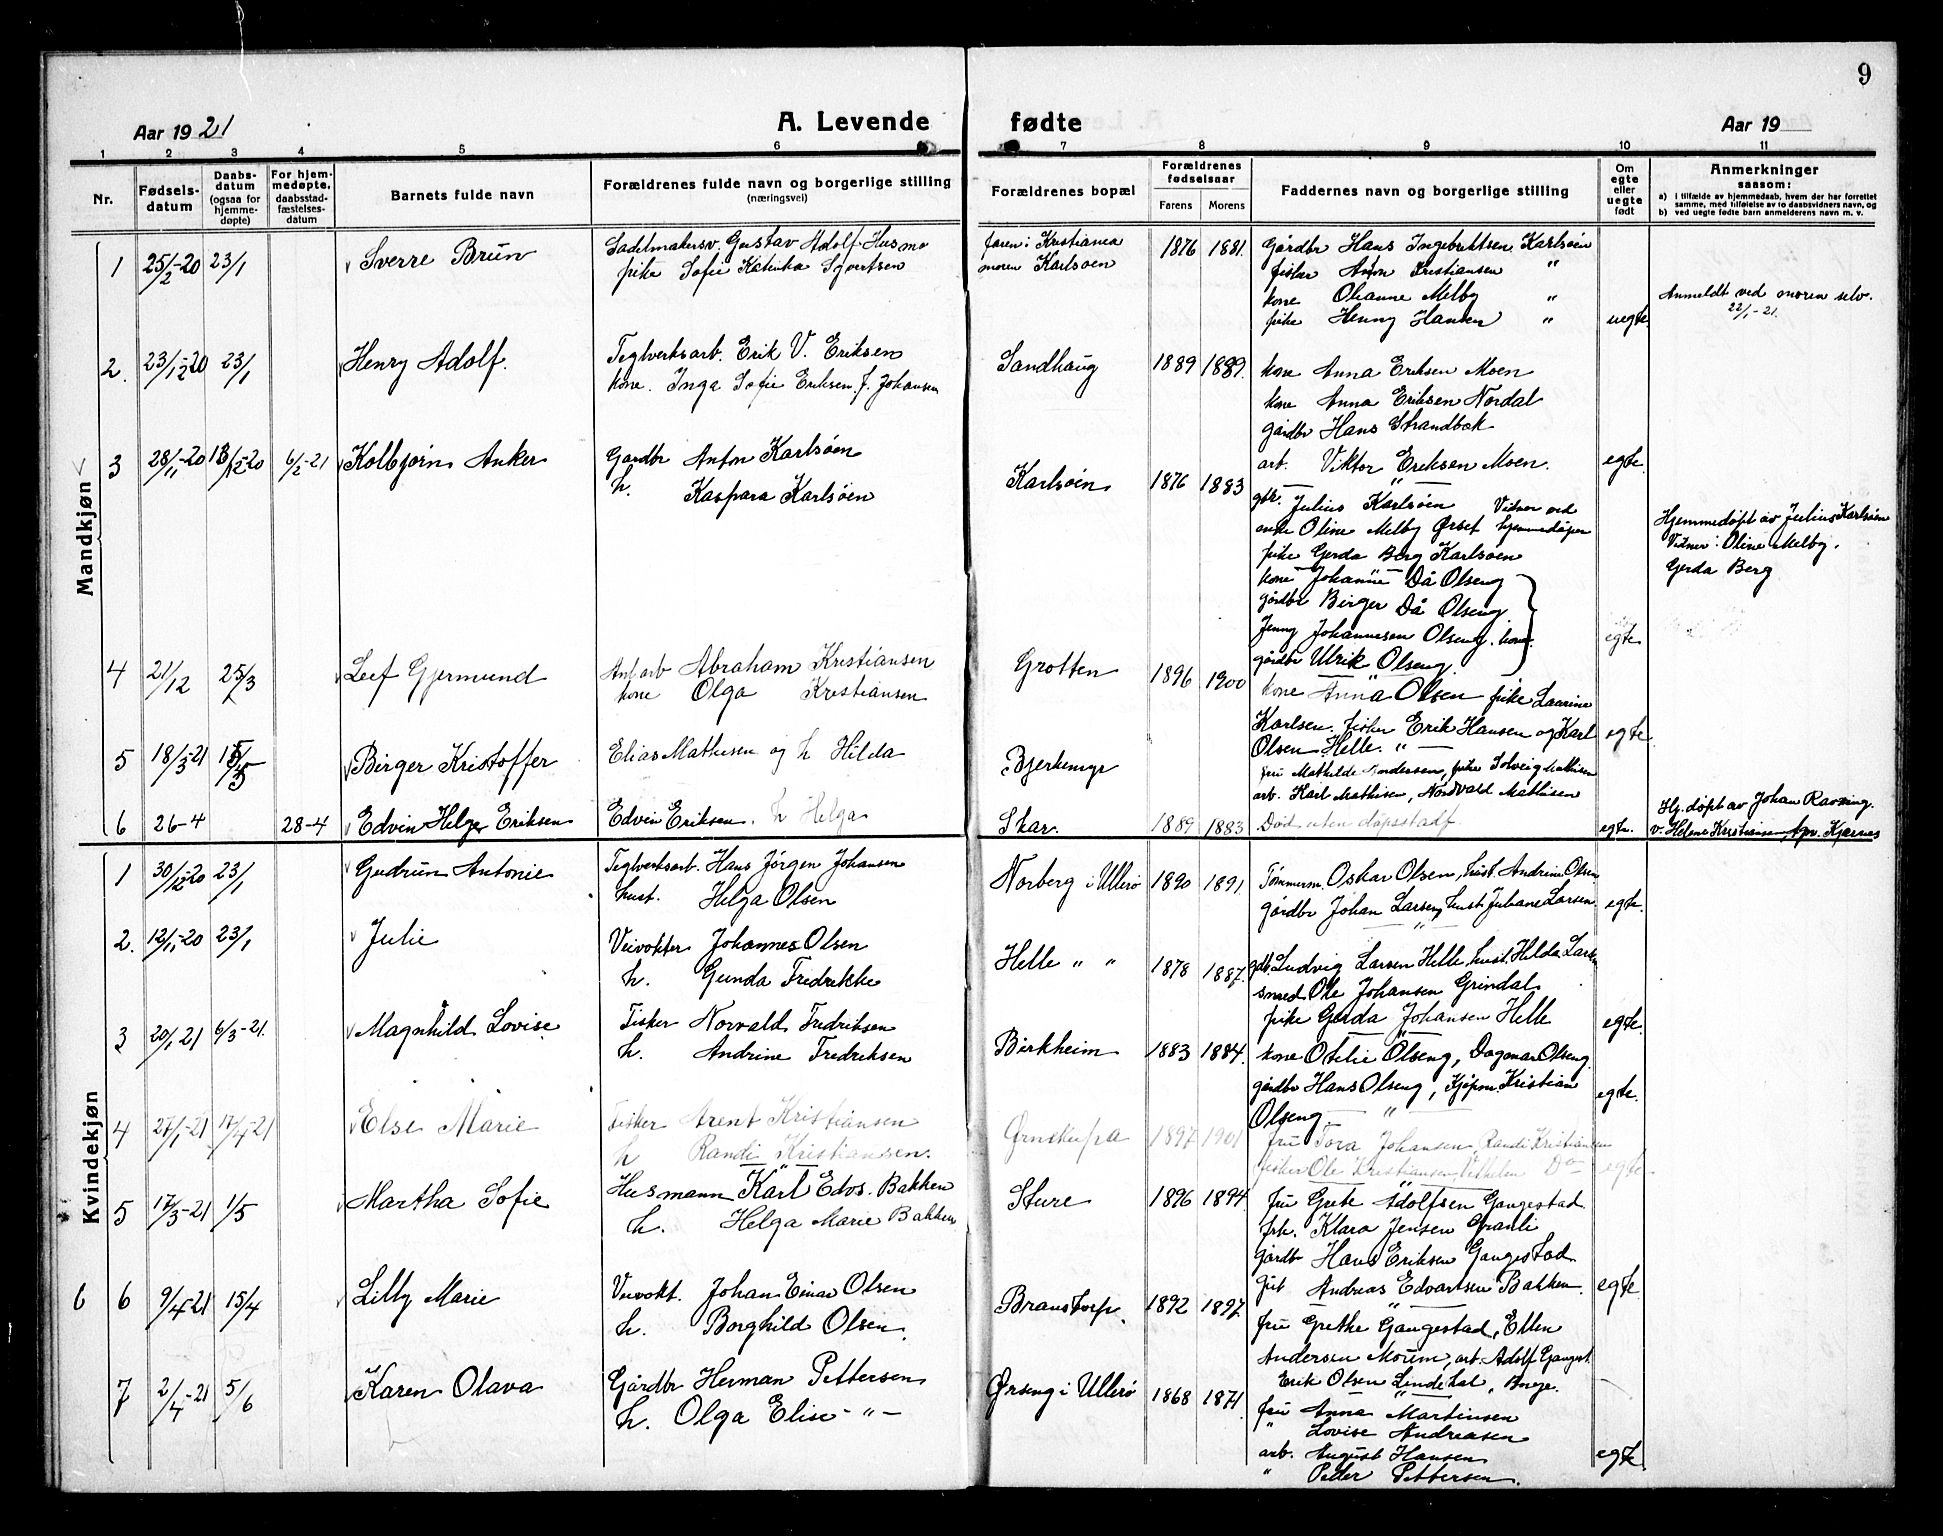 9
Aar 1921 A. Levende fødte Aar 19
1 2 3 4 5 6 7 8 9 10 11
Nr. Fødselsdatum Daabsdatum (ogsaa for hjemmedøpte) For hjemmedøpte, daabsstadfæstelsesdatum Barnets fulde navn Forældrenes fulde navn og borgerlige stilling (næringsvei) Forældrenes bopæl Forældrenes fødselsaar Farens Morens Faddernes navn og borgerlige stilling Om egte eller uegte født Anmerkninger saasom:
a) i tilfælde av hjemmedaab, hvem der har forrettet samme, med tilføielse av to daabsvidners navn, og
b) ved uegte fødte barn anmelderens navn m. v.
Mandkjøn
1 25/12-20 23/1 Sverre Brun Sadelmakersv. Gustav Adolf Husmo faren i Kristiania 1876 1881. Gårdbr Hans Ingebriktsen Karlsøen
pike Sofie Katinka Syvertsen moren Karlsøen fisker Anton Kristiansen "
kone Ohanne Melby " Anmeldt ved moren selv.
pike Henny Hansen " uegte 22/1-21.
2. 23/12-20 23/1 Henry Adolf. Teglverksarb. Erik V. Eriksen Sandhaug 1889 1889. kone Anna Eriksen Moen
kone. Inga Sofie Eriksen f. Johansen kone Anna Eriksen Nordal
gårdbr Hans Strandbak
arb. Viktor Eriksen Moen. egte.
3 28/11-20 18/12-20 6/2-21 Kolbjørn Anker Gardbr Anton Karlsøen Karlsøen 1876 1883
h. Kaspara Karlsøen
gbr. Julius Karlsøen Vidner ved
enke Oline Melby Ørset hjemmedåpen
pike Gerda Berg Karlsøen
Hjemmedøpt av Julius Karlsøen
Vidner: Oline Melby.
Gerda Berg
kone Johanne Då Olseng
gårdbr Birger Då Olseng
Jenny Johannesen Olseng. kone. egte
gårdbr Ulrik Olseng.
4 21/12 25/3 Leif Gjermund Anl arb Abraham Kristiansen Grotten 1896 1900
kone Olga Kristiansen
kone Anna Olsen pike Laurine
Karlsen. fisker Erik Hansen og Karl egte.
Olsen Helle. "
5 18/3-21 15/5 Birger Kristoffer Elias Mathisen og h Hilda Bjerkemyr
fru Mathilde Andersen, pike Solveig Mathisen
arb. Karl Mathisen, Nordvald Mathisen
6 26-4 28-4 Edvin Helger Eriksen Edvin Eriksen. h Helga Skar. 1889 1883 Død uten dåpsstadf. egte.
Hj. døpt av Johan Ravning.
v. Helene Kristiansen, Kjærnes
Kvindekjøn
1 30/12-20 23/1 Gudrun Antonie Teglverksarb. Hans Jørgen Johansen Norberg i Ullerø 1890 1891. Tømmerm. Oskar Olsen, hust. Andrine Olsen
hust. Helga Olsen gårdbr Johan Larsen, hust Juliane Larsen. egte.
2. 12/11-20 23/1 Julie Veivokter Johannes Olsen Helle " " 1878 1887. gdb. Ludvig Larsen Helle, hust. Hilda Larsen
h. Gunda Fredrikke smed Ole Johansen Grindal
pike Gerda Johansen Helle egte.
3 20/1 21 6/3-21. Magnhild Lovise. Fisker Norvald Fredriksen Birkheim 1883 1884. kone Otelie Olseng, Dagmar Olseng
h. Andrine Fredriksen gårdbr Hans Olseng, Kjøpm. Kristian egte.
Olseng
4 27/1-21 17/4-21 Else Marie Fisker Arent Kristiansen 1897 1901 fru Tora Johansen, Randi Kristiansen
h Randi Kristiansen. fisker Ole Kristiansen, Vilhelm Do egte
5 17/3-21 1/5 Martha Sofie Husmann Karl Edv. Bakken Sture 1896 1894 fru Grete Adolfsen Gangestad
h. Helga Marie Bakken frk. Klara Jensen Granli
gårdbr Hans Eriksen Gangestad
gut Andreas Edvartsen Bakken. egte
6 6 9/4-21 15/4 Lilly Marie Veivokt. Johan Einar Olsen Branstorp. 1892 1897.
h. Borghild Olsen. fru Grethe Gangestad, Ellen
Andersen Moum, arb. Adolf Gangest.
Erik Olsen Lindetal, Borge.
7 2/4-21 5/6 Karen Olava Gårdbr Herman Pettersen Ørseng i Ullerø 1868 1871.
h. Olga Elise - " - fru Anna Martinsen
" Lovise Andreasen
arb. August Hansen egte
" Peder Pettersen.